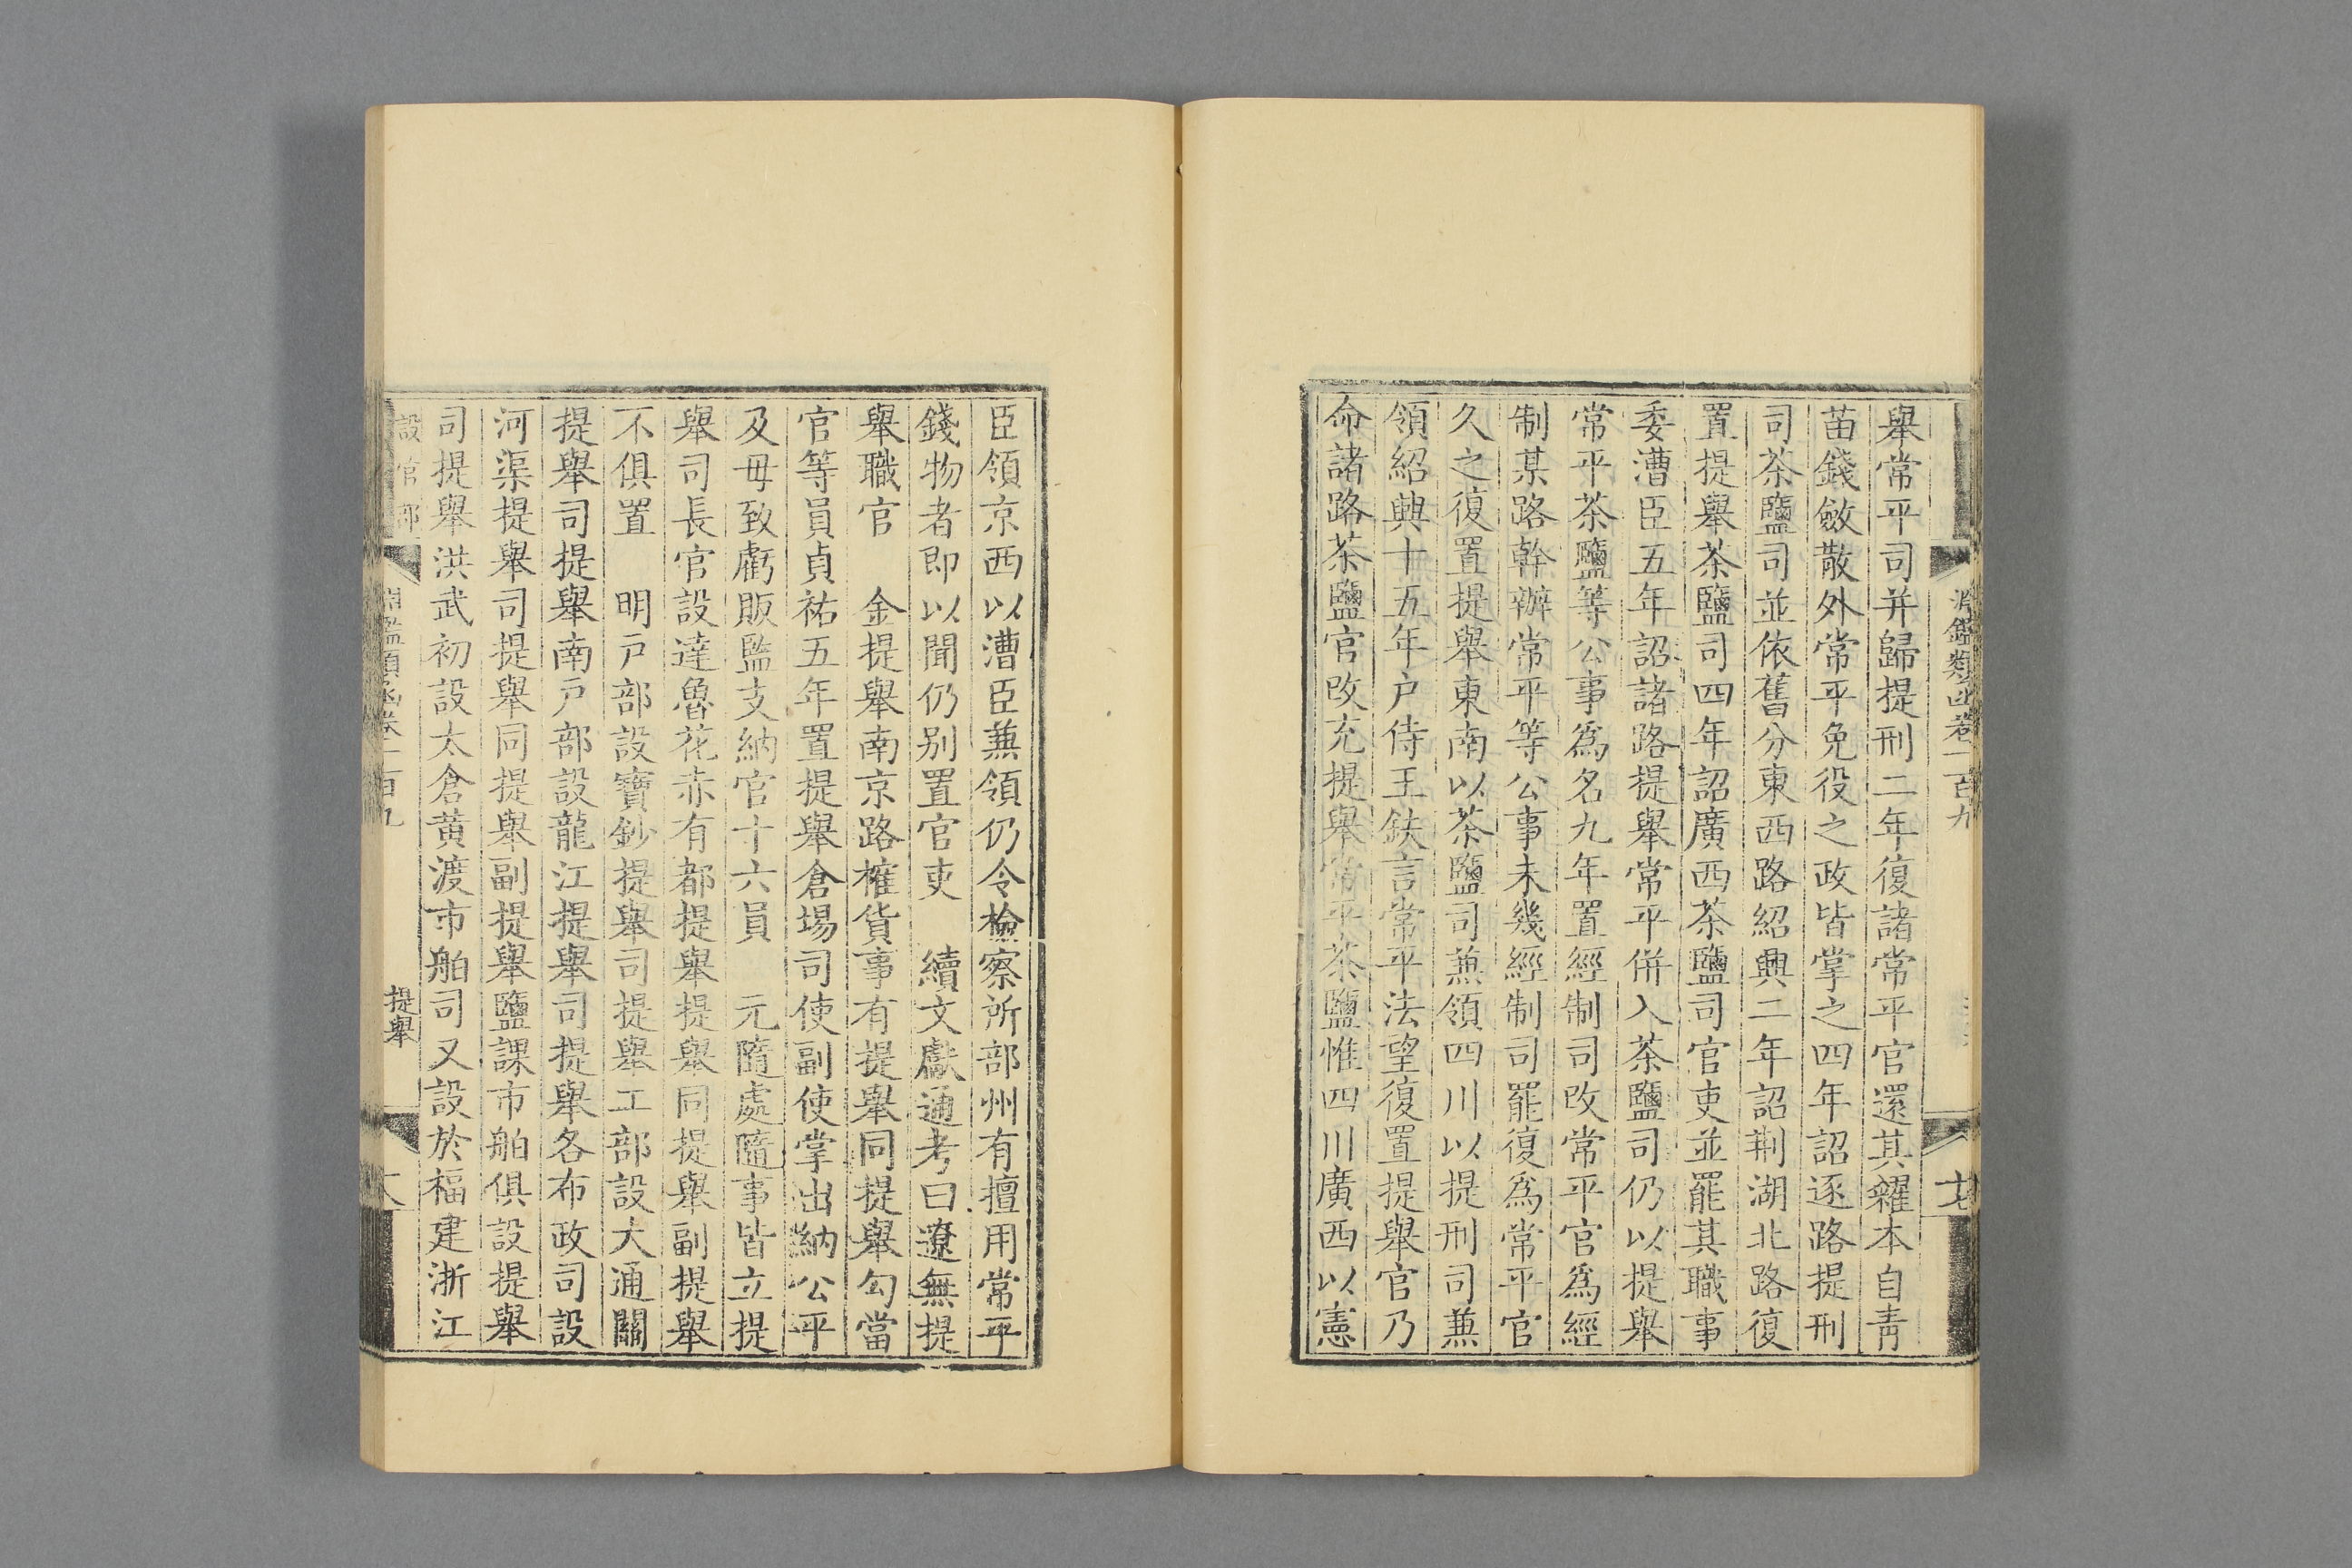 淵鑑類函卷一百九
十七
舉常平司并歸提刑二年復諸常平官還其糴本自靑
苗錢斂散外常平免役之政皆掌之四年詔逐路提刑
司茶鹽司並依舊分東西路紹興二年詔荆湖北路復
置提舉茶鹽司四年詔廣西茶鹽司官吏並罷其職事
委漕臣五年詔諸路提舉常平併入茶鹽司仍以提舉
常平茶鹽等公事爲名九年置經制司改常平官爲經
制某路幹辦常平等公事未幾經制司罷復爲常平官
久之復置提舉東南以茶鹽司兼領四川以提刑司兼
領紹興十五年户侍王鈇言常平法望復置提舉官乃
命諸路茶鹽官改充提舉常平茶鹽惟四川廣西以憲
臣領京西以漕臣兼領仍令檢察所部州有擅用常平
錢物者即以聞仍别置官吏　續文獻通考曰遼無提
舉職官　金提舉南京路榷貨事有提舉同提舉勾當
官等員貞祐五年置提舉倉場司使副使掌出納公平
及毋致虧販監支納官十六員　元隨處隨事皆立提
舉司長官設達魯花赤有都提舉提舉同提舉副提舉
不俱置　明戸部設寶鈔提舉司提舉工部設大通關
提舉司提舉南戸部設龍江提舉司提舉各布政司設
河渠提舉司提舉同提舉副提舉鹽課市舶俱設提舉
司提舉洪武初設太倉黄渡市舶司又設於福建浙江
設官部
淵鑑類函卷一百九
提舉